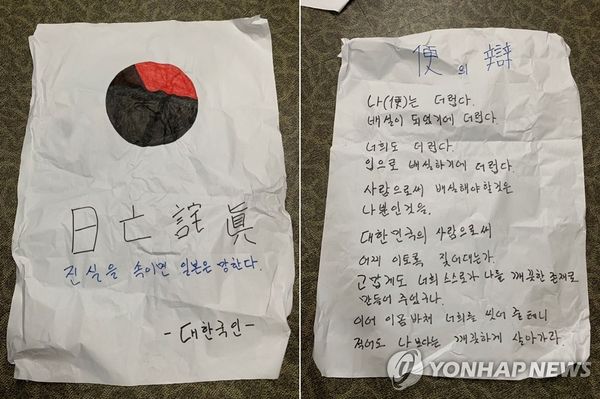 日亡詮眞
진실을 속이면 일본은 망한다.
-대한국인-
便의 辯
나(便)는 더럽다.
배설이 되었기에 더럽다.
너희도 더럽다.
입으로 배설하기에 더럽다.
사람으로써 배설해야할것은
나뿐인것을.
대한민국의 사람으로써
어찌 이토록 짖어대는가.
고맙게도 너희 스스로가 나를 깨끗한 존재로
만들어 주었구나.
이에 이몸바쳐 너희를 씻어 줄테니
적어도 나보다는 깨끗하게 살아가라.
YONHAPNEWS